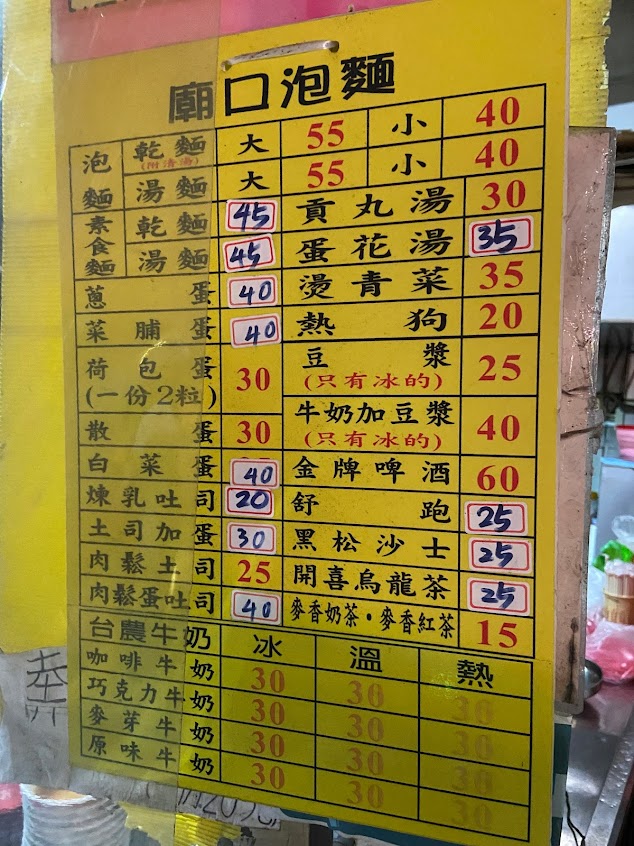 廟口泡麵
泡麵 乾麵 (附清湯) 大 55 小 40
湯麵 大 55 小 40
素食麵 乾麵 45 貢丸湯 30
湯麵 45 蛋花湯 35
蔥蛋 40 燙青菜 35
菜脯蛋 40 熱狗 20
荷包蛋 30 豆漿 25
(一份2粒) (只有冰的)
散蛋 30 牛奶加豆漿 40
(只有冰的)
白菜蛋 40 金牌啤酒 60
煉乳吐司 20 舒跑 25
土司加蛋 30 黑松沙士 25
肉鬆土司 25 開喜烏龍茶 25
肉鬆蛋吐司 40 麥香奶茶·麥香紅茶 15
台農牛奶 冰 溫 熱
咖啡牛奶 30 30 30
巧克力牛奶 30 30 30
麥芽牛奶 30 30 30
原味牛奶 30 30 30